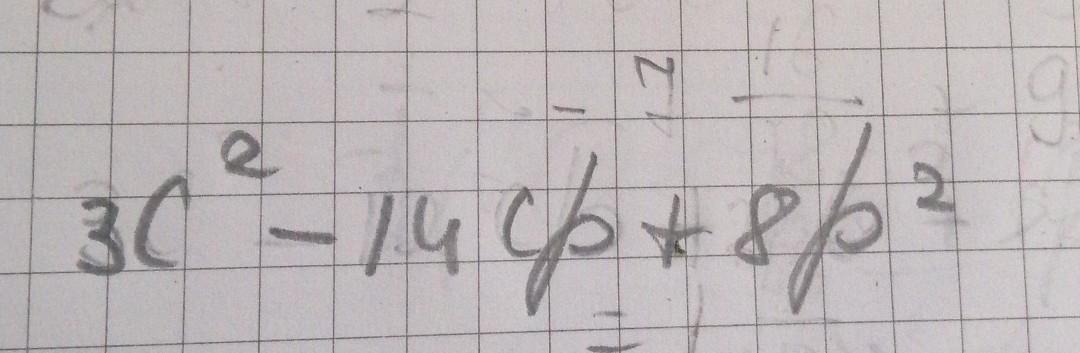 3c² - 14cp + 8p²